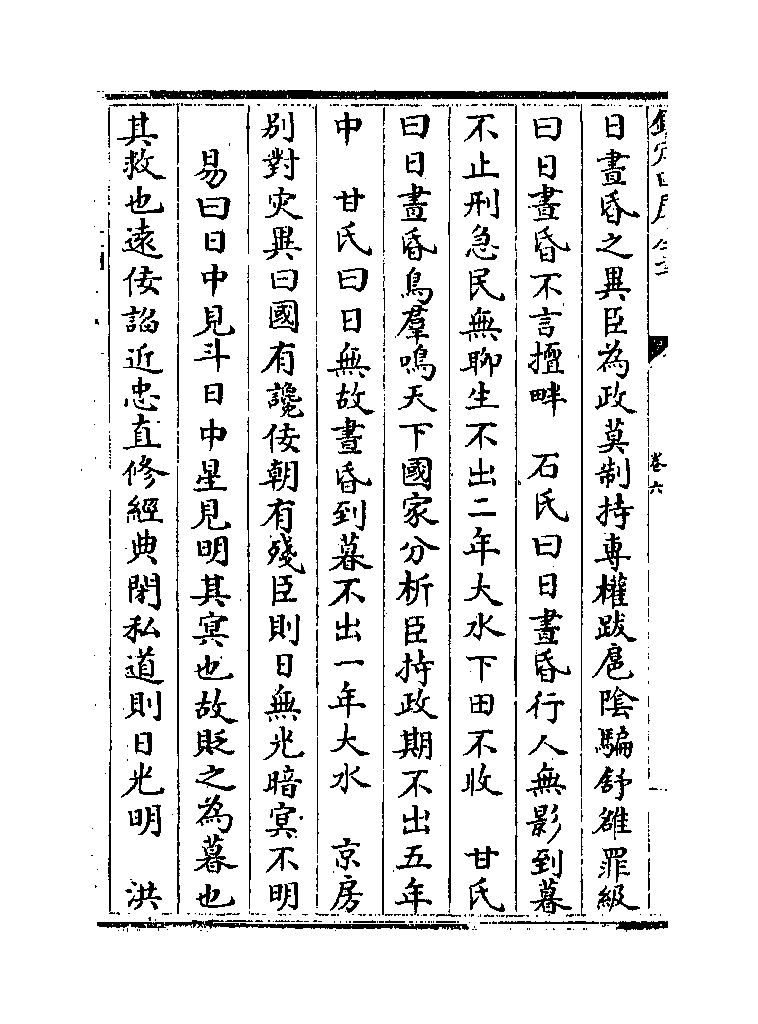 日晝昏之異臣為政莫制持專權跋扈陰騙舒雒罪級
曰日晝昏不言擅畔　石氏曰日晝昏行人無影到暮
不止刑急民無聊生不出二年大水下田不收　甘氏
曰日晝昏鳥羣鳴天下國家分析臣持政期不出五年
中　甘氏曰日無故晝昏到暮不出一年大水　京房
别對灾異曰國有讒佞朝有殘臣則日無光暗冥不明
易曰日中見斗日中星見明其冥也故貶之為暮也
其救也遠佞謟近忠直修經典閉私道則日光明　洪
卷六